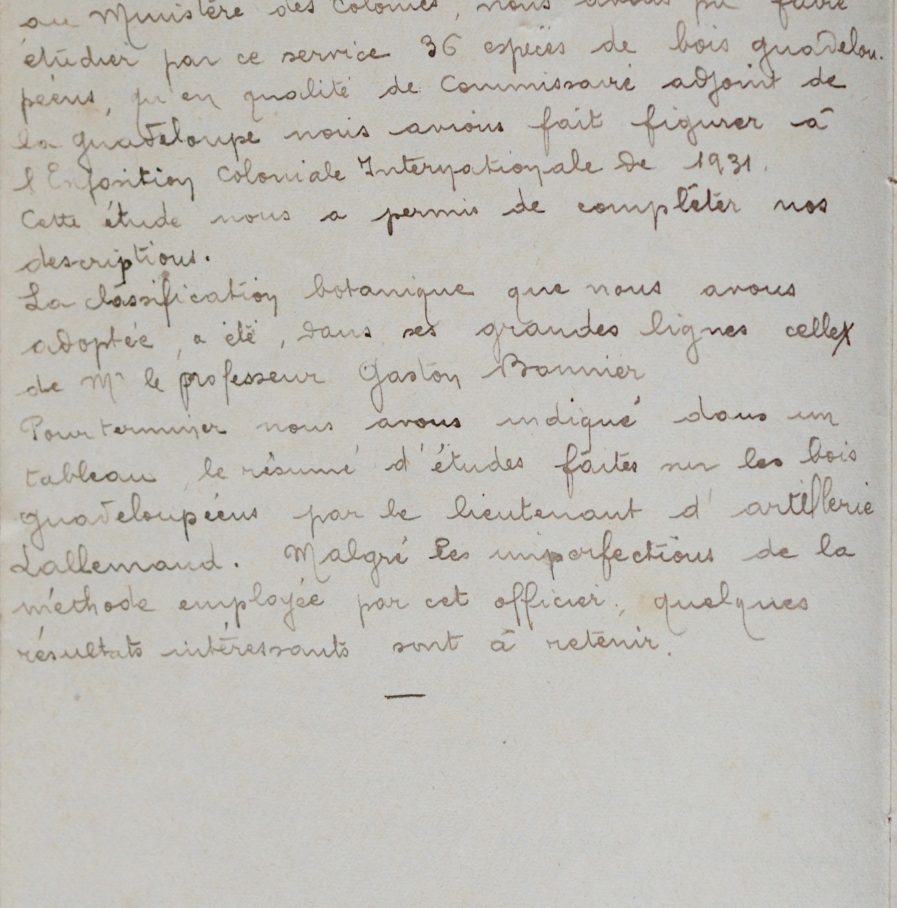 au Ministère des Colonies, nous avons pu faire
étudier par ce service 36 espèces de bois guadelou-
péens, qu'en qualité de Commissaire adjoint de
la Guadeloupe nous avions fait figurer à
l'Exposition Coloniale Internationale de 1931.
Cette étude nous a permis de compléter nos
descriptions.
La classification botanique que nous avons
adoptée, a été, dans ses grandes lignes celle
de Mr le professeur Gaston Bonnier
Pour terminer nous avons indiqué dans un
tableau, le résumé d'études faites sur les bois
guadeloupéens par le lieutenant d'artillerie
Lallemand. Malgré les imperfections de la
méthode employée par cet officier, quelques
résultats intéressants sont à retenir.